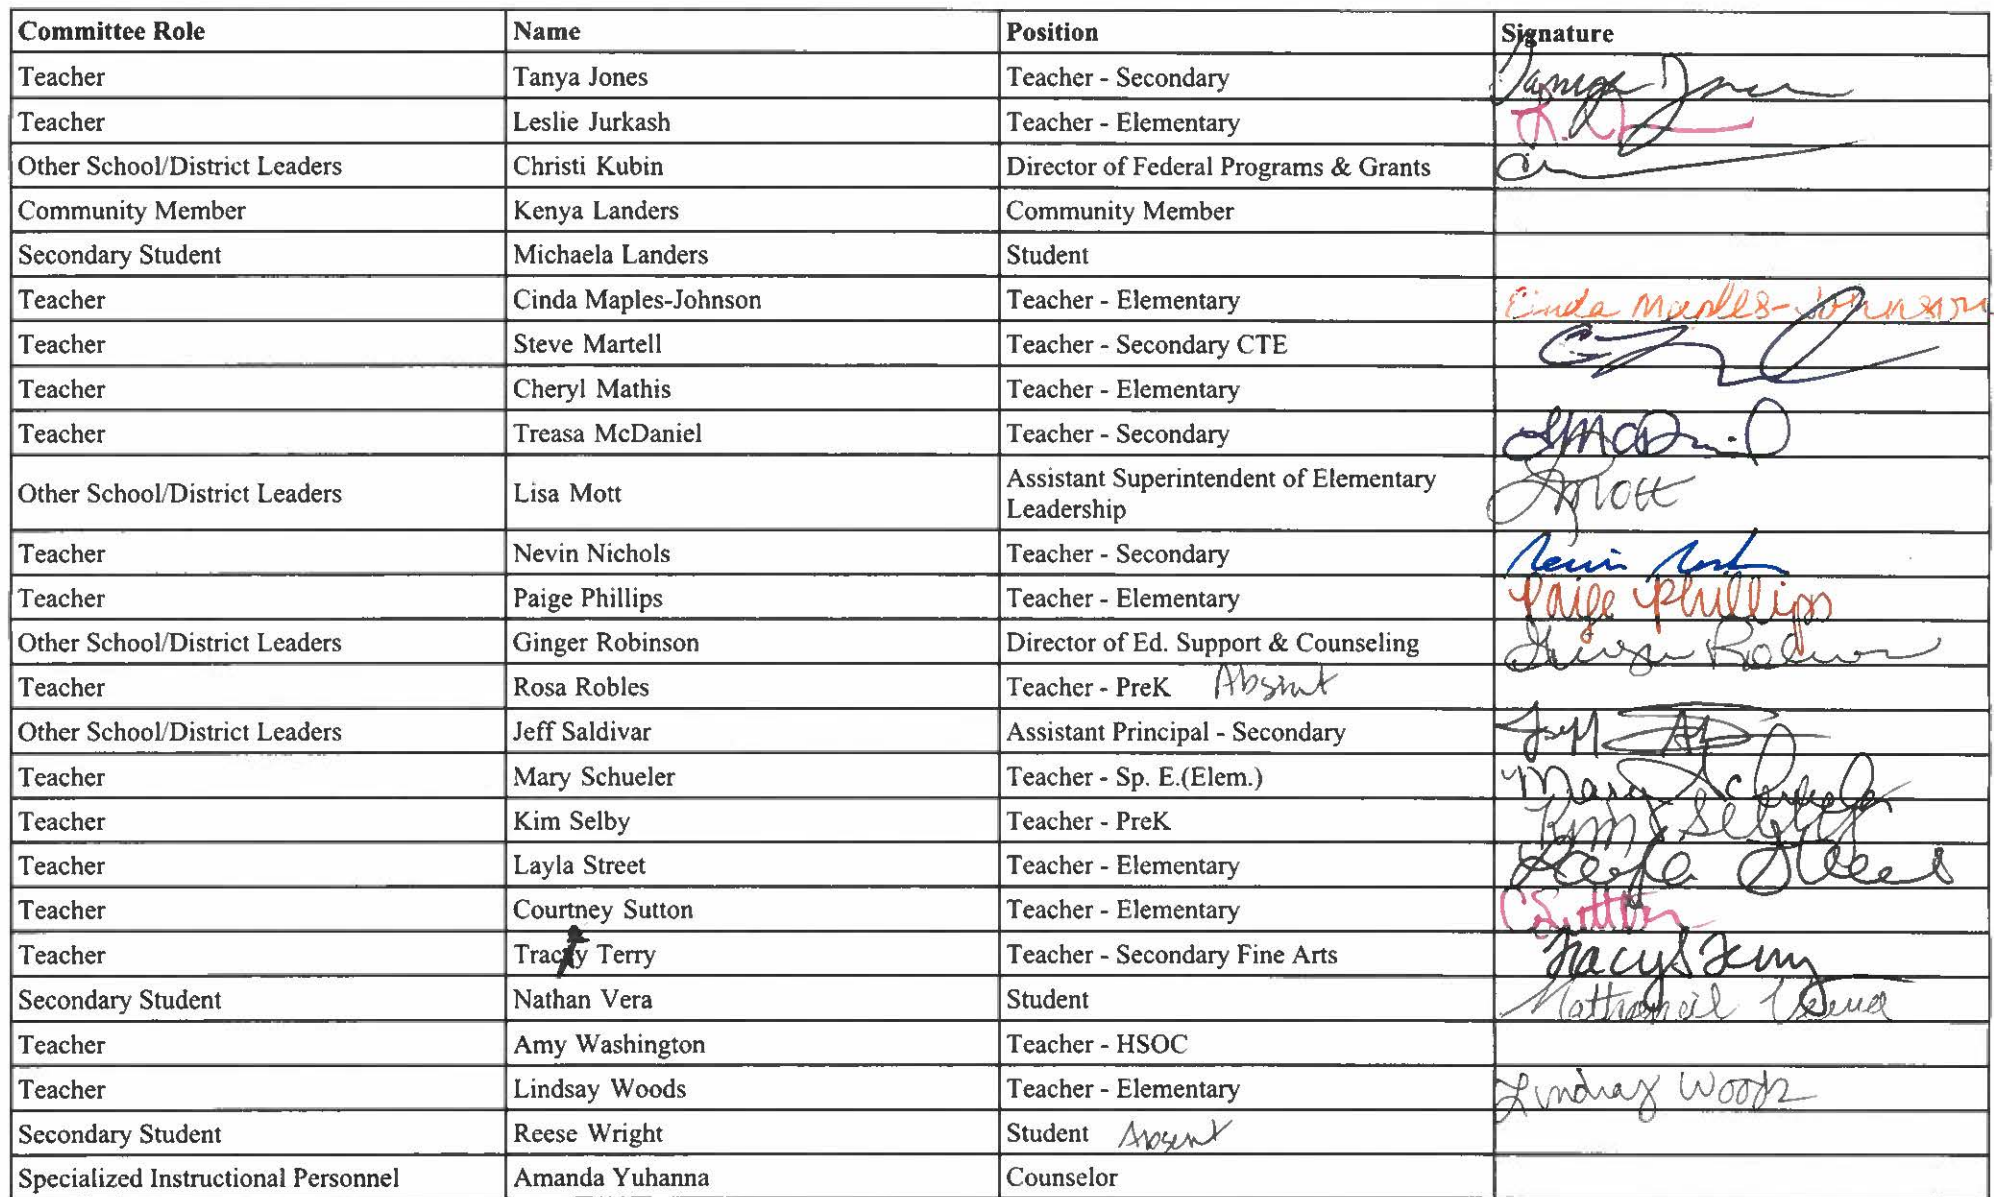 Committee Role Name Position Signature
Teacher Tanya Jones Teacher - Secondary
Teacher Leslie Jurkash Teacher - Elementary
Other School/District Leaders Christi Kubin Director of Federal Programs & Grants
Community Member Kenya Landers Community Member
Secondary Student Michaela Landers Student
Teacher Cinda Maples-Johnson Teacher - Elementary Cinda Maples-Johnson
Teacher Steve Martell Teacher - Secondary CTE
Teacher Cheryl Mathis Teacher - Elementary
Teacher Treasa McDaniel Teacher - Secondary
Other School/District Leaders Lisa Mott Assistant Superintendent of Elementary
Leadership
Teacher Nevin Nichols Teacher - Secondary
Teacher Paige Phillips Teacher - Elementary Paige Phillips
Other School/District Leaders Ginger Robinson Director of Ed. Support & Counseling
Teacher Rosa Robles Teacher - PreK Absent
Other School/District Leaders Jeff Saldivar Assistant Principal - Secondary
Teacher Mary Schueler Teacher - Sp. E.(Elem.) Mary Schueler
Teacher Kim Selby Teacher - PreK Kim Selby
Teacher Layla Street Teacher - Elementary Layla Street
Teacher Courtney Sutton Teacher - Elementary CSutton
Teacher Tracy Terry Teacher - Secondary Fine Arts Tracy S Terry
Secondary Student Nathan Vera Student
Teacher Amy Washington Teacher - HSOC
Teacher Lindsay Woods Teacher - Elementary Lindsay Woods
Secondary Student Reese Wright Student Absent
Specialized Instructional Personnel Amanda Yuhanna Counselor